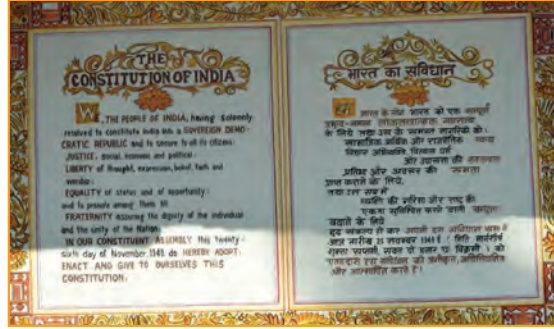 THE
CONSTITUTION OF INDIA
WE, THE PEOPLE OF INDIA, having solemnly
resolved to constitute India into a SOVEREIGN DEMO-
CRATIC REPUBLIC and to secure to all its citizens:
JUSTICE, social, economic and political;
LIBERTY of thought, expression, belief, faith and
worship;
EQUALITY of status and of opportunity;
and to promote among them all
FRATERNITY assuring the dignity of the individual
and the unity of the Nation;
IN OUR CONSTITUENT ASSEMBLY this twenty-
sixth day of November 1949, do HEREBY ADOPT,
ENACT AND GIVE TO OURSELVES THIS
CONSTITUTION.
भारत का संविधान
भारत के लोग भारत को एक सम्पूर्ण
के लिये तथा उस के समस्त नागरिकों को:
सामाजिक आर्थिक और राजनैतिक न्याय
विचार अभिव्यक्ति, विश्वास धर्म
और उपासना की स्वतंत्रता
प्रतिष्ठा और अवसर की समता
प्राप्त कराने के लिये,
तथा उन सब में
व्यक्ति की गरिमा और राष्ट्र की
एकता सुनिश्चित करने वाली बन्धुता
बढ़ाने के लिये